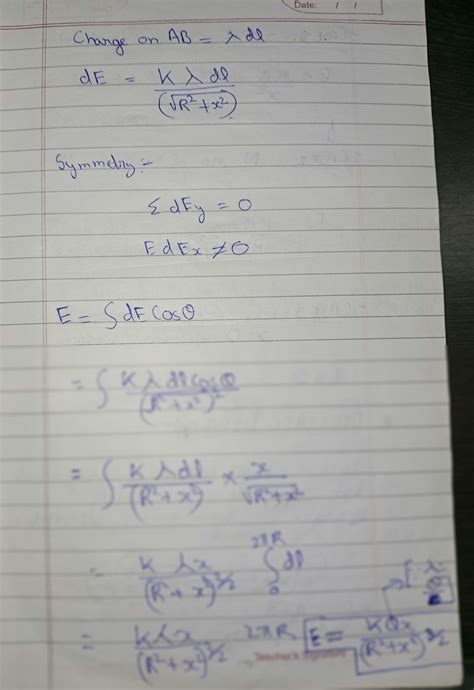 Date: / /
Charge on AB = λ dl
dE = K λ dl / (√R²+x²)
Symmetry:-
Σ dEy = 0
E dEx ≠ 0
E = ∫ dE Cosθ
= ∫ K λ dl cosθ / (R²+x²)²
= ∫ K λ dl / (R²+x²) × x / √R²+x²
= K λ x / (R²+x²)^3/2 ∫₀^2πR dl
= K λ x / (R²+x²)^3/2 2πR
E = KQx / (R²+x²)^3/2
Teacher's Signature